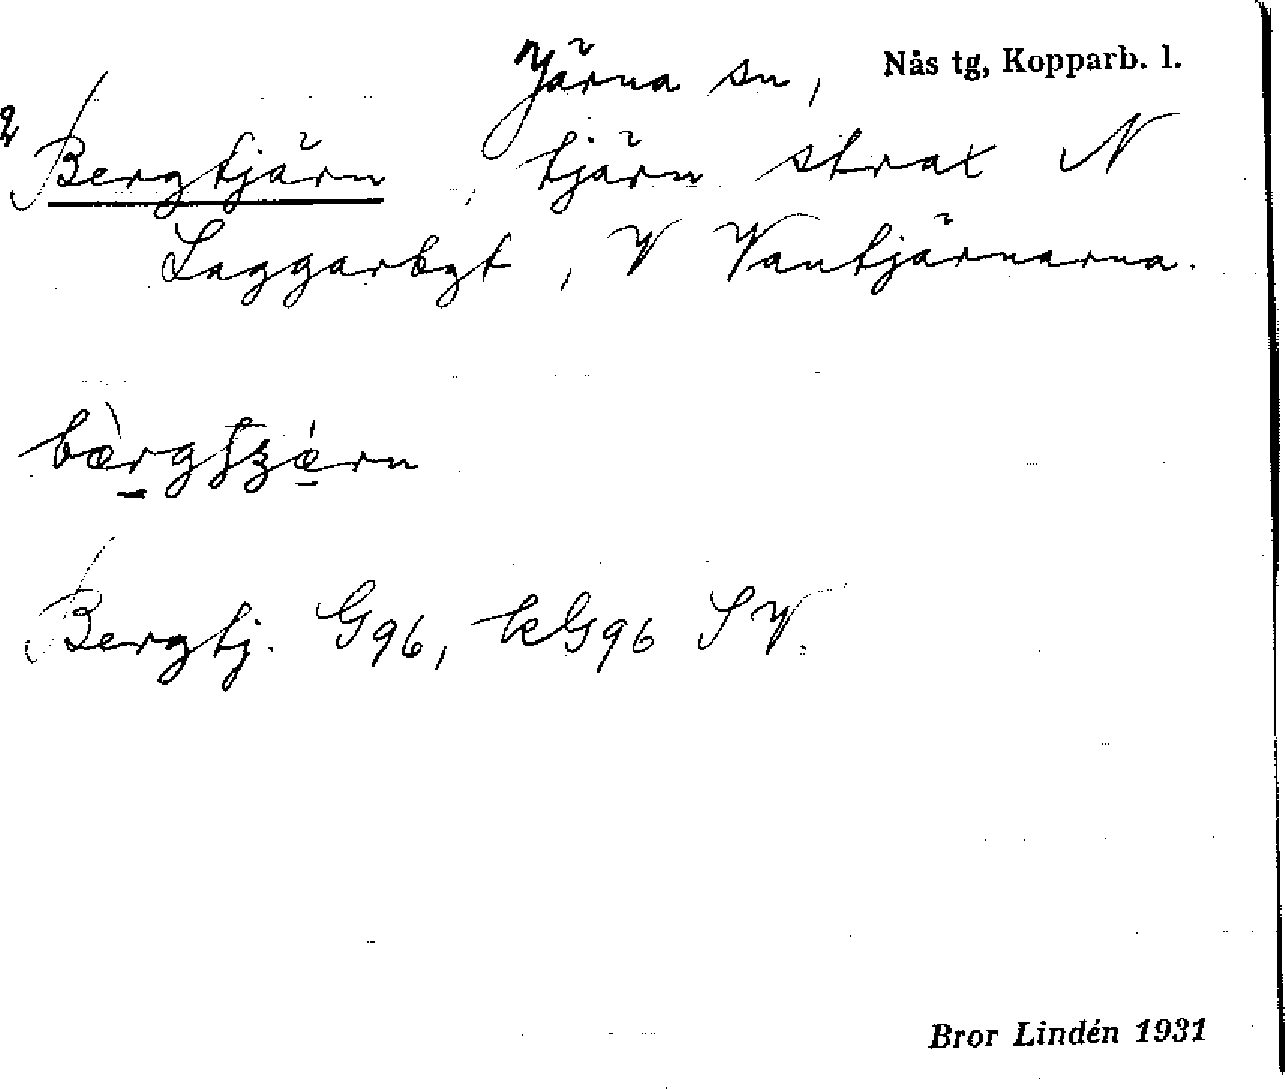 Järna sn, Nås tg, Kopparb. l.
Bergtjärn, tjärn strax N
Laggarbgt, V Vantjärnarna.
Bergtj. G96, kG96 SV.
Bror Lindén 1931